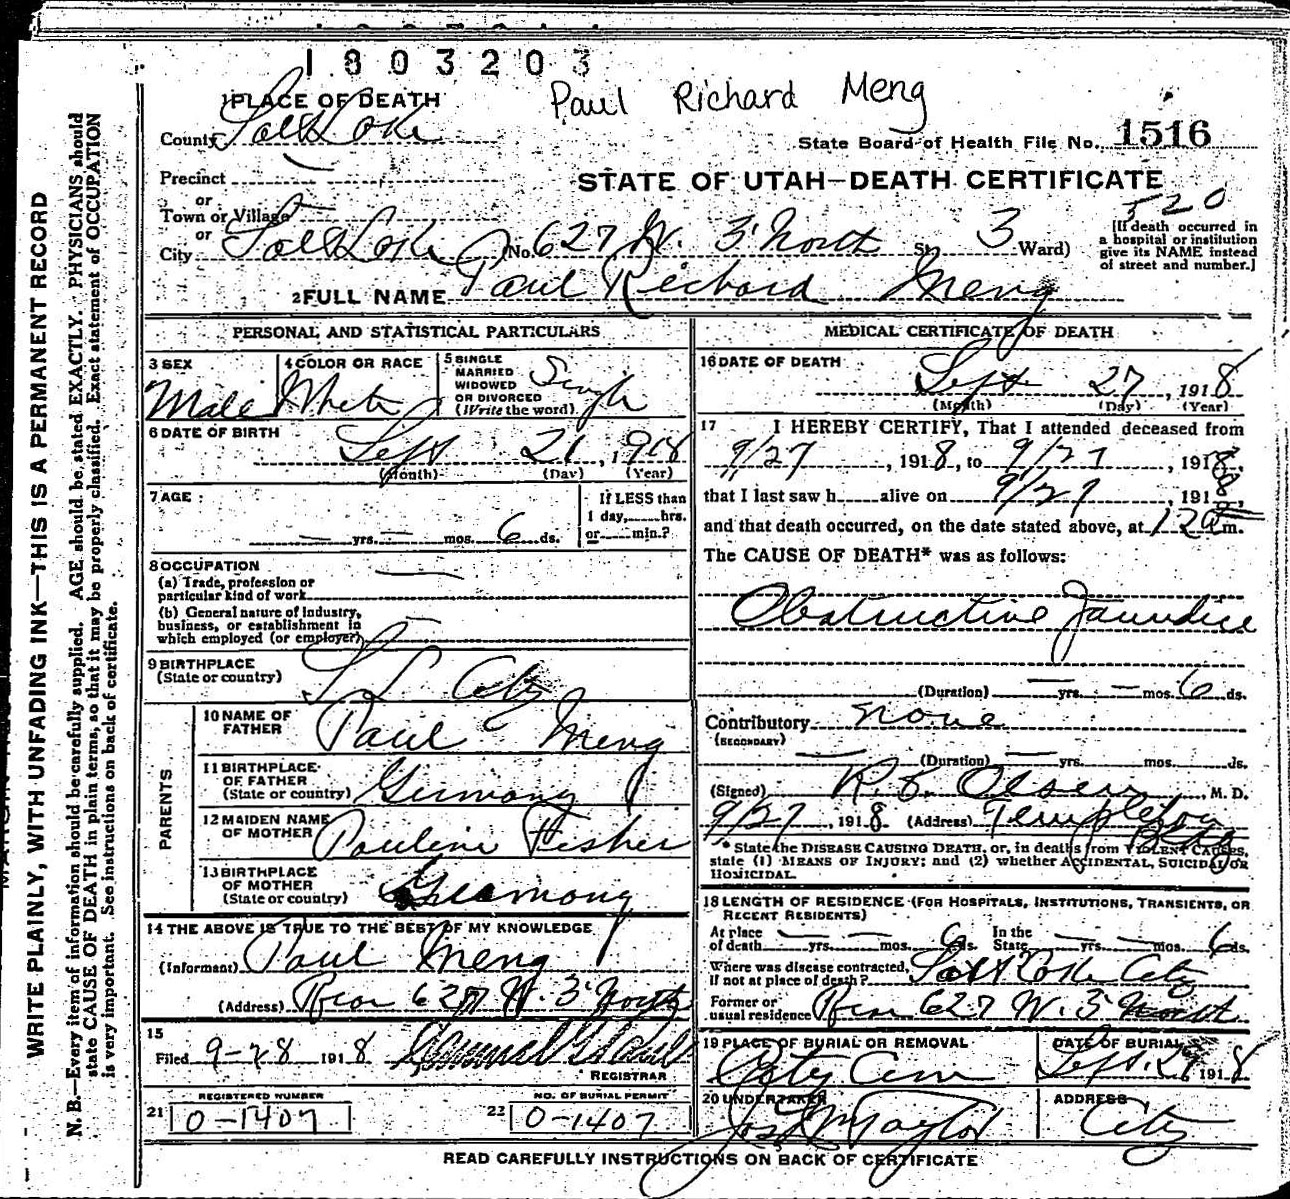 1803203
Paul Richard Meng
1 PLACE OF DEATH
County Salt Lake
State Board of Health File No. 1516
Precinct
STATE OF UTAH—DEATH CERTIFICATE
or
Town or Village
520
or
City Salt Lake (No. 627 W. 3 North St. 3 Ward)
[If death occurred in
a hospital or institution
give its NAME instead
of street and number.]
2 FULL NAME Paul Richard Meng
PERSONAL AND STATISTICAL PARTICULARS
3 SEX Male
4 COLOR OR RACE White
5 SINGLE
MARRIED
WIDOWED
OR DIVORCED
(Write the word) Single
6 DATE OF BIRTH
Sept 21, 1918
(Month) (Day) (Year)
7 AGE
— yrs. — mos. 6 ds.
If LESS than
1 day, hrs.
or min.?
8 OCCUPATION
(a) Trade, profession or
particular kind of work
(b) General nature of industry,
business, or establishment in
which employed (or employer)
9 BIRTHPLACE
(State or country) S L City
PARENTS
10 NAME OF
FATHER Paul Meng
11 BIRTHPLACE
OF FATHER
(State or country) Germany
12 MAIDEN NAME
OF MOTHER Pauline Fisher
13 BIRTHPLACE
OF MOTHER
(State or country) Germany
14 THE ABOVE IS TRUE TO THE BEST OF MY KNOWLEDGE
(Informant) Paul Meng
(Address) Rear 627 W. 3 North
15
Filed 9-28 1918
REGISTRAR
REGISTERED NUMBER
21 0-1407
NO. OF BURIAL PERMIT
22 0-1407
MEDICAL CERTIFICATE OF DEATH
16 DATE OF DEATH
Sept 27, 1918
(Month) (Day) (Year)
17 I HEREBY CERTIFY, That I attended deceased from
9/27, 1918, to 9/27, 1918,
that I last saw h alive on 9/27, 1918,
and that death occurred, on the date stated above, at 12 a m.
The CAUSE OF DEATH* was as follows:
Obstructive Jaundice
(Duration) — yrs. — mos. 6 ds.
Contributory none
(SECONDARY)
(Duration) — yrs. mos. ds.
(Signed) Olsen, M. D.
9/27, 1918 (Address) Templeton
Bldg
* State the DISEASE CAUSING DEATH, or, in deaths from VIOLENT CAUSES,
state (1) MEANS OF INJURY; and (2) whether ACCIDENTAL, SUICIDAL OR
HOMICIDAL.
18 LENGTH OF RESIDENCE (FOR HOSPITALS, INSTITUTIONS, TRANSIENTS, OR
RECENT RESIDENTS)
At place
of death — yrs. — mos. 6 ds.
In the
State — yrs. — mos. 6 ds.
Where was disease contracted,
if not at place of death? Salt Lake City
Former or
usual residence Rear 627 W. 3 North
19 PLACE OF BURIAL OR REMOVAL
City Cem
DATE OF BURIAL
Sept. 1918
20 UNDERTAKER
Taylor
ADDRESS
City
READ CAREFULLY INSTRUCTIONS ON BACK OF CERTIFICATE
WRITE PLAINLY, WITH UNFADING INK—THIS IS A PERMANENT RECORD
N. B.—Every item of information should be carefully supplied. AGE should be stated EXACTLY. PHYSICIANS should
state CAUSE OF DEATH in plain terms, so that it may be properly classified. Exact statement of OCCUPATION
is very important. See instructions on back of certificate.